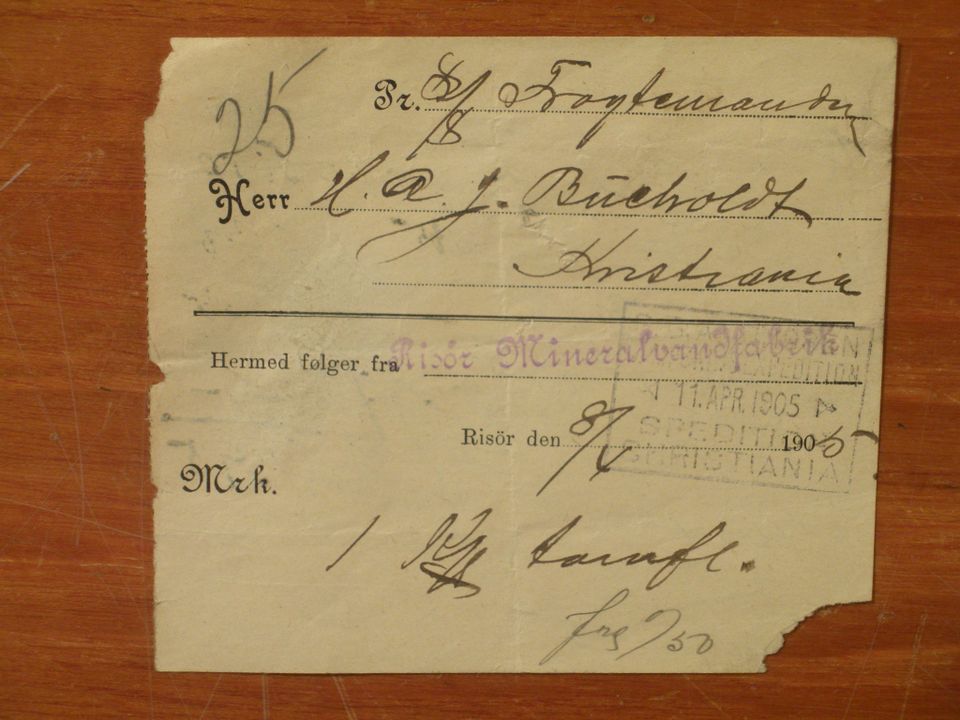 25
Pr. D/S Fragtemanden
Herr H. A. J. Bücholdt
Kristiania
Hermed følger fra Risör Mineralvandfabrik
EXPEDITION
11. APR. 1905
SPEDITION
CHRISTIANIA
Risör den 8/4 1905
Mrk.
1 tomfl.
frg /50